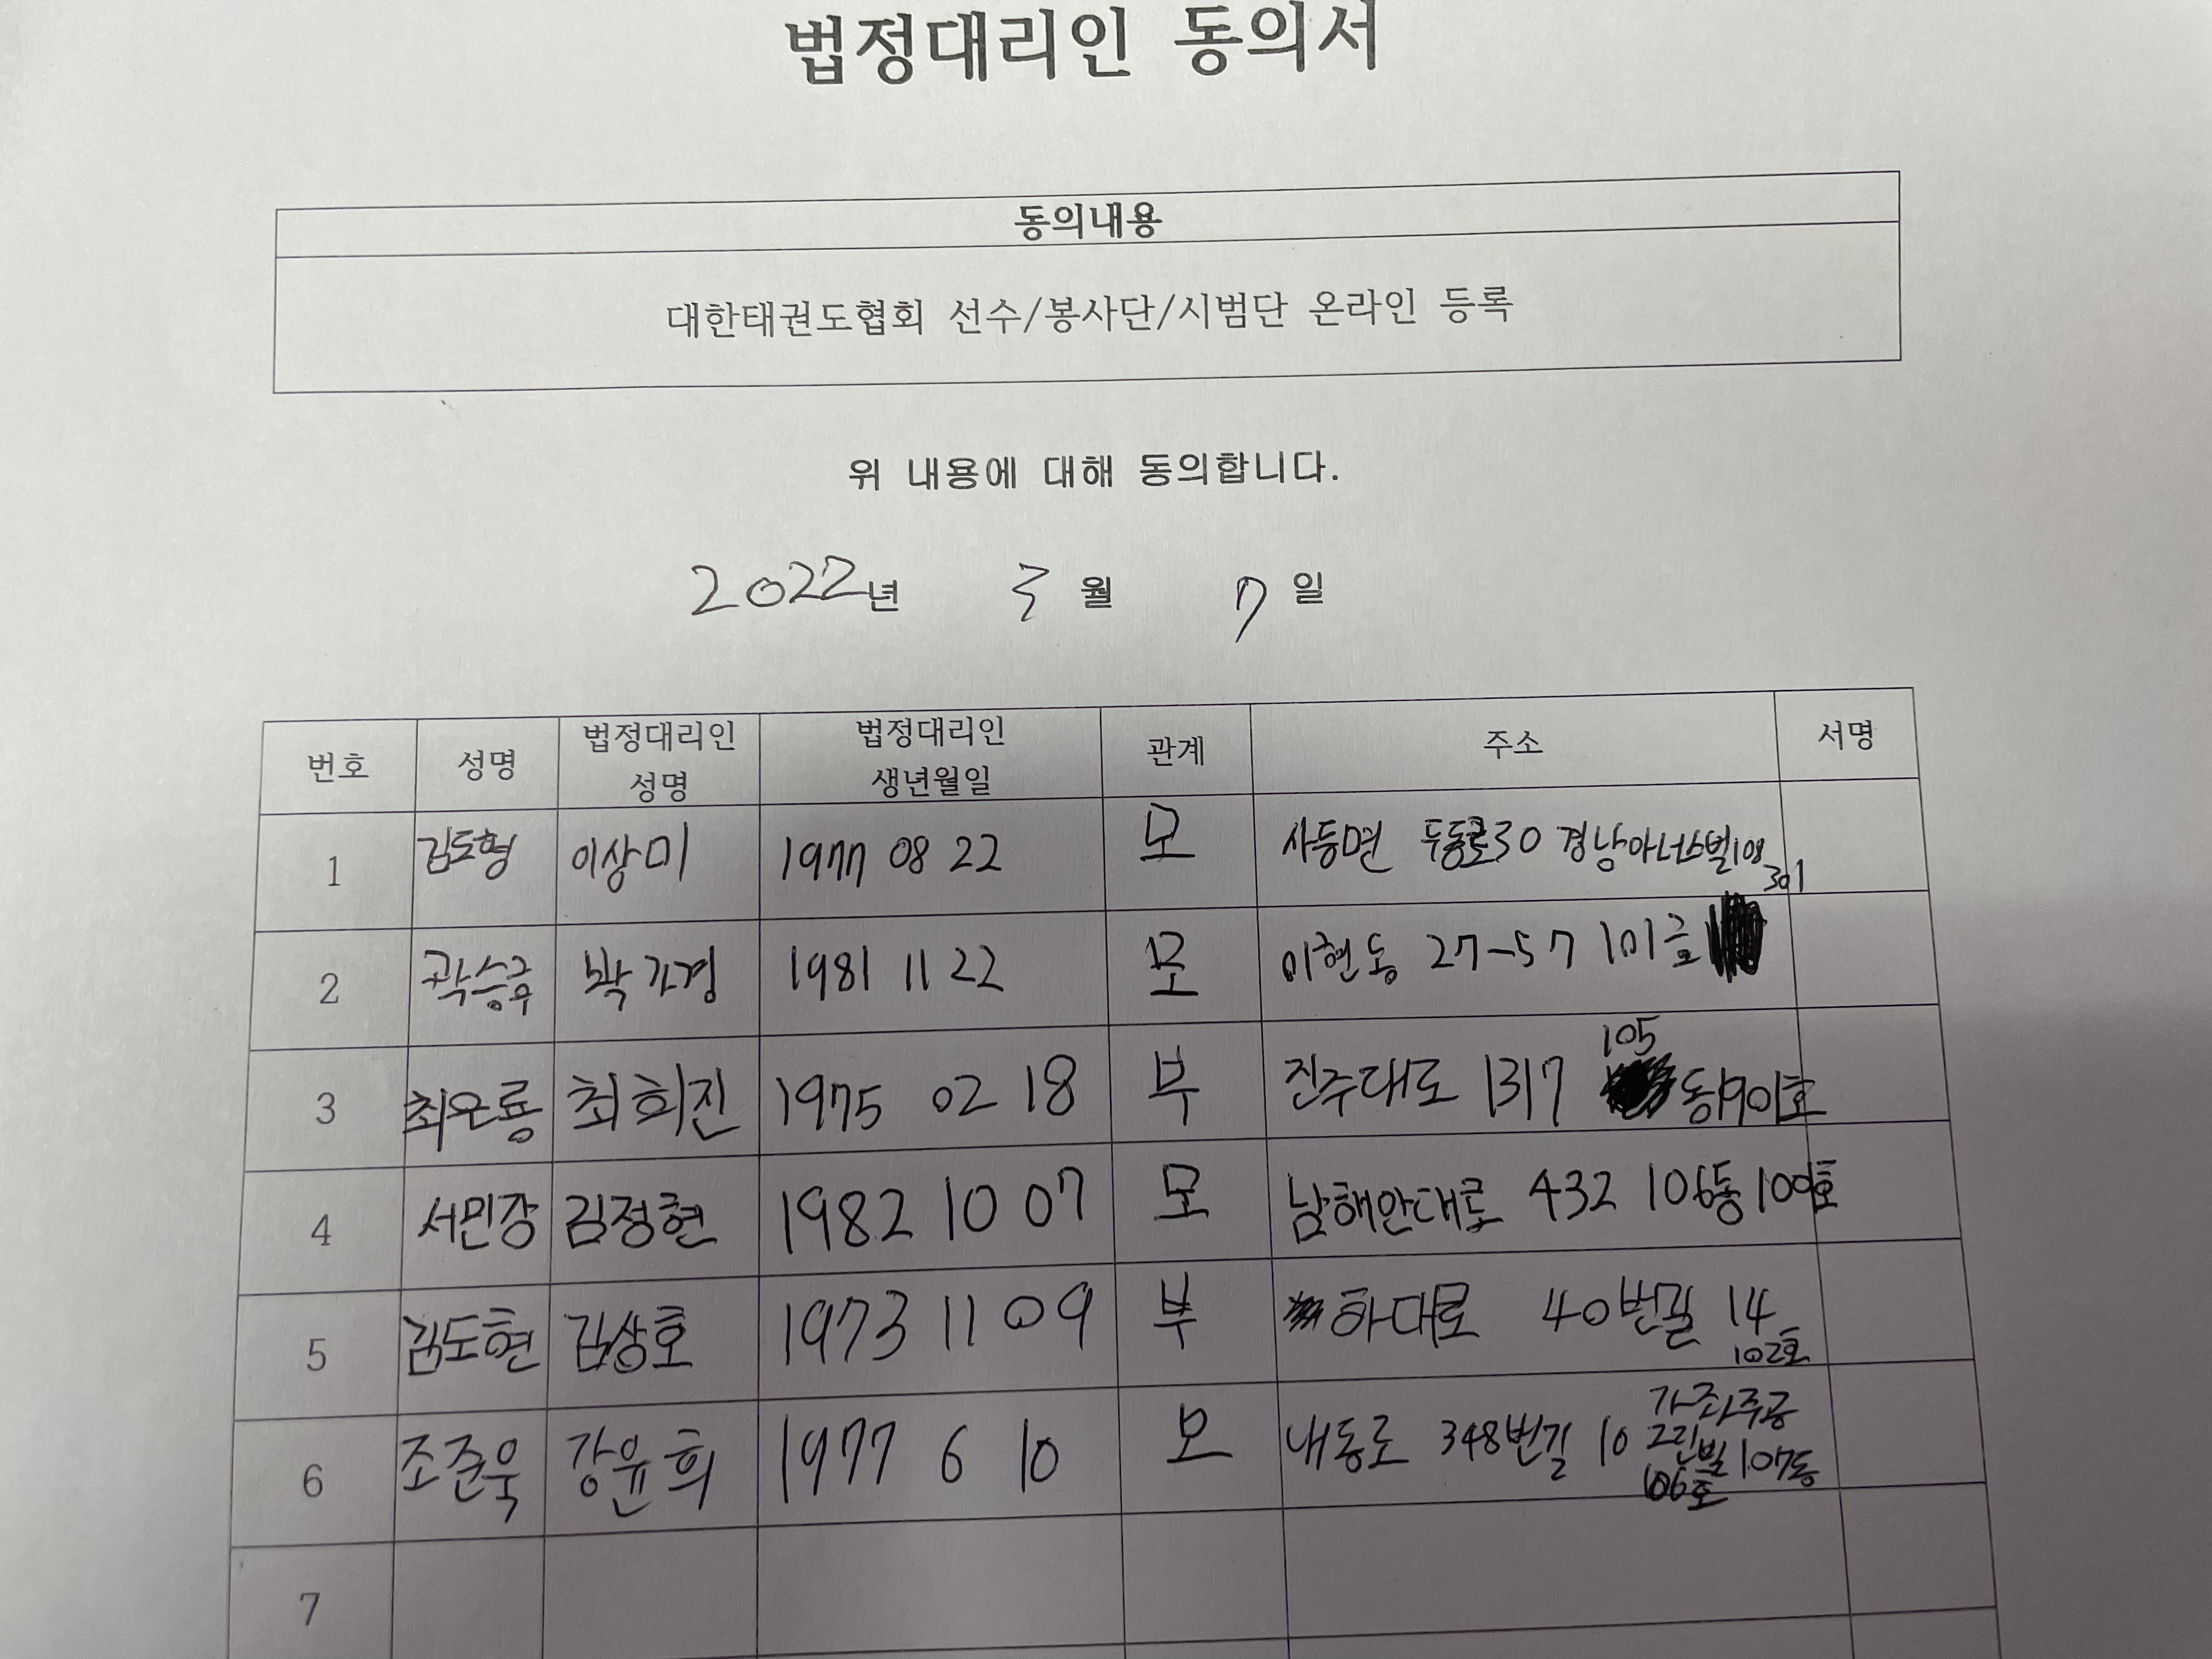 법정대리인 동의서
동의내용
대한태권도협회 선수/봉사단/시범단 온라인 등록
위 내용에 대해 동의합니다.
2022년 3월 7일
번호 성명 법정대리인 성명 법정대리인 생년월일 관계 주소 서명
1 김도형 이상미 1977 08 22 모 사동면 두동로30 경남아너스빌108
301
2 곽승준 박경 1981 11 22 모 이현동 27-57
105
3 최은룡 최희진 1975 02 18 부 진주대로 1317 동1901호
4 서민강 김정현 1982 10 07 모 남해안대로 432 106동
5 김도현 김상호 1973 11 09 부 하대로 40번길 14
102호
6 조준욱 강윤희 1977 6 10 모 내동로 348번길 10 가좌주공
그린빌 107동
106호
7